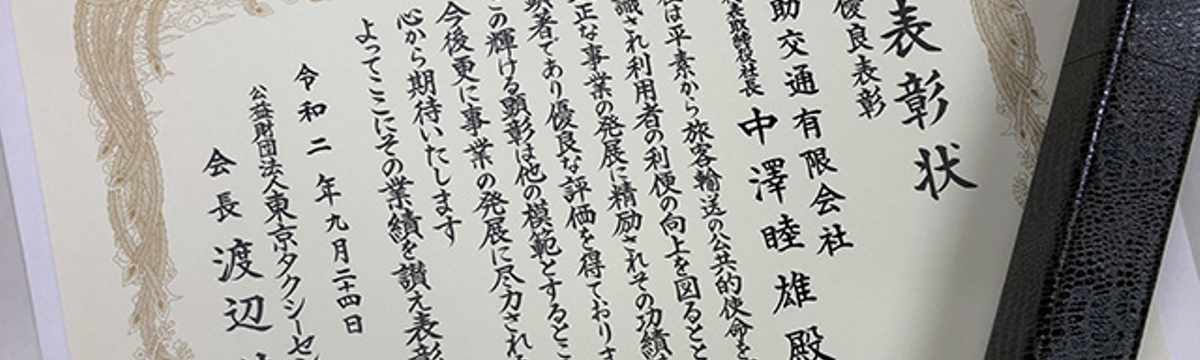 表彰状
優良表彰
助交通有限会社
表取締役社長 中澤睦雄殿
は平素から旅客輸送の公共的使命を
識され利用者の利便の向上を図ると
正な事業の発展に精励されその功績
者であり優良な評価を得ておりま
の輝ける顕彰は他の模範とするとこ
今後更に事業の発展に尽力され
心から期待いたします
よってここにその業績を讃え表彰
令和二年九月二十四日
公益財団法人東京タクシーセ
会長 渡辺